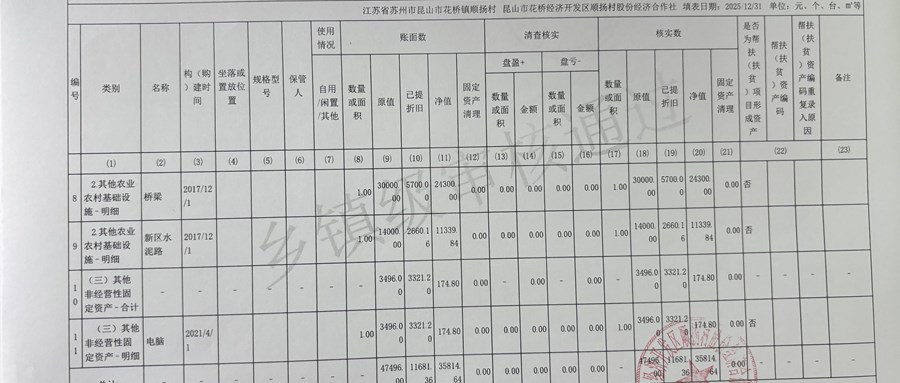 江苏省苏州市昆山市花桥镇顺扬村 昆山市花桥经济开发区顺扬村股份经济合作社 填表日期：2025/12/31 单位：元、个、台、㎡等
编号 类别 名称 构（购）建时间 坐落或置放位置 规格型号 保管人 使用情况 账面数 清查核实 核实数 是否为帮扶（扶贫）项目形成资产 帮扶（扶贫）资产编码 帮扶（扶贫）资产编码重复录入原因 备注
盘盈+ 盘亏-
自用/闲置/其他 数量或面积 原值 已提折旧 净值 固定资产清理 数量或面积 金额 数量或面积 金额 数量或面积 原值 已提折旧 净值 固定资产清理
(1) (2) (3) (4) (5) (6) (7) (8) (9) (10) (11) (12) (13) (14) (15) (16) (17) (18) (19) (20) (21) (22) (23)
8 2.其他农业农村基础设施-明细 桥梁 2017/12/1 1.00 30000.00 5700.00 24300.00 0.00 0.00 0.00 0.00 0.00 1.00 30000.00 5700.00 24300.00 0.00 否
9 2.其他农业农村基础设施-明细 新区水泥路 2017/12/1 1.00 14000.00 2660.16 11339.84 0.00 0.00 0.00 0.00 0.00 1.00 14000.00 2660.16 11339.84 0.00 否
10 （三）其他非经营性固定资产-合计 - - - - - - - 3496.00 3321.20 174.80 0.00 - 0.00 - 0.00 - 3496.00 3321.20 174.80 0.00 - - - -
11 （三）其他非经营性固定资产-明细 电脑 2021/4/1 1.00 3496.00 3321.20 174.80 0.00 0.00 0.00 0.00 0.00 1.00 3496.00 3321.20 174.80 0.00 否
47496.00 11681.36 35814.64 0.00 0.00 0.00 47496.00 11681.36 35814.64 0.00
乡镇级审核通过